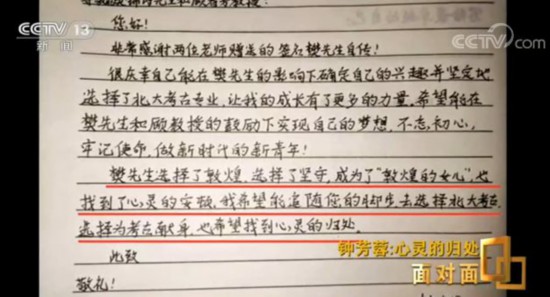 CCTV 13
新闻
先生和顾
教授：
您好！
非常感谢两位老师赠送的签名樊先生自传！
很庆幸自己能在樊先生的影响下确定自己的兴趣并坚定地
选择了北大考古专业，让我的成长有了更多的力量。希望能在
樊先生和顾教授的鼓励下实现自己的梦想，不忘初心，
牢记使命，做新时代的新青年！
樊先生选择了敦煌，选择了坚守，成为了“敦煌的女儿”，也
找到了心灵的安顿。我希望能追随您的脚步去选择北大考古，
选择为考古献身，也希望找到心灵的归处。
此致
敬礼！
钟芳蓉：心灵的归处
面对面